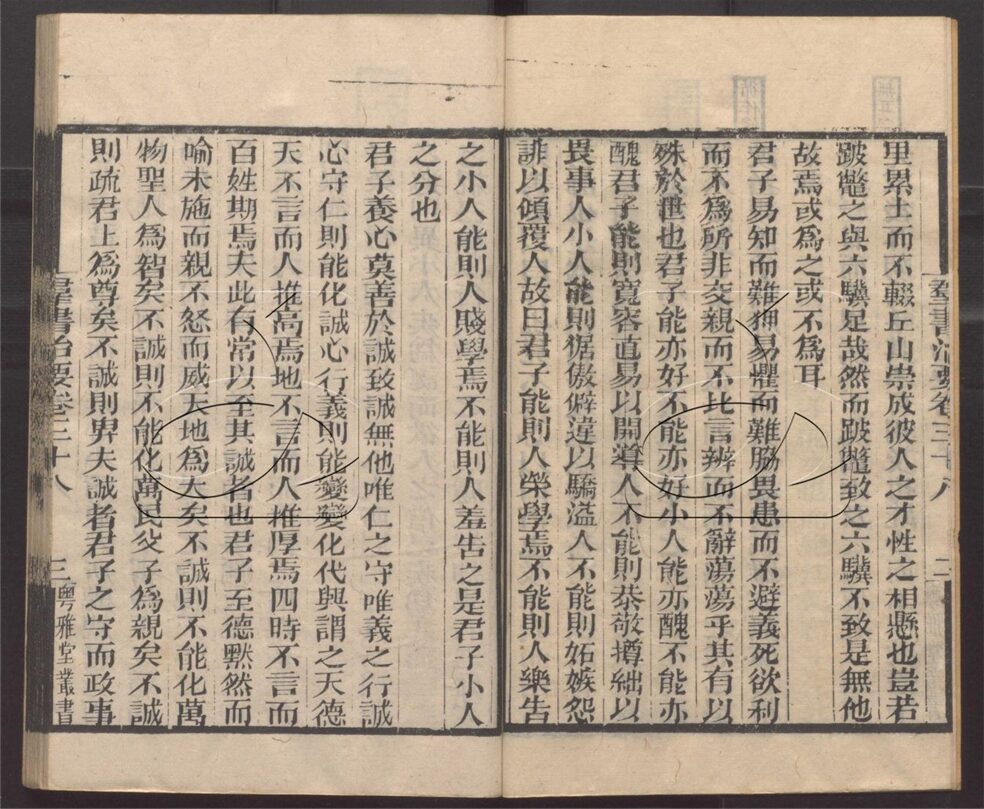 里累土而不輟丘山崇成彼人之才性之相懸也豈若
跛鼈之與六驥足哉然而跛鼈致之六驥不致是無他
故焉或為之或不為耳
君子易知而難狎易懼而難脇畏患而不避義死欲利
而不為所非交親而不比言辨而不辭蕩蕩乎其有以
殊於世也君子能亦好不能亦好小人能亦醜不能亦
醜君子能則寬容直易以開導人不能則恭敬撙絀以
畏事人小人能則倨傲僻違以驕溢人不能則妬嫉怨
誹以傾覆人故曰君子能則人榮學焉不能則人樂告
羣書治要卷三十八 二
之小人能則人賤學焉不能則人羞告之是君子小人
之分也
君子養心莫善於誠致誠無他唯仁之守唯義之行誠
心守仁則能化誠心行義則能變變化代興謂之天德
天不言而人推高焉地不言而人推厚焉四時不言而
百姓期焉夫此有常以至其誠者也君子至德默然而
喻未施而親不怒而威天地為大矣不誠則不能化萬
物聖人為智矣不誠則不能化萬民父子為親矣不誠
則疏君上為尊矣不誠則卑夫誠者君子之守而政事
羣書治要卷三十八 三 粵雅堂叢書